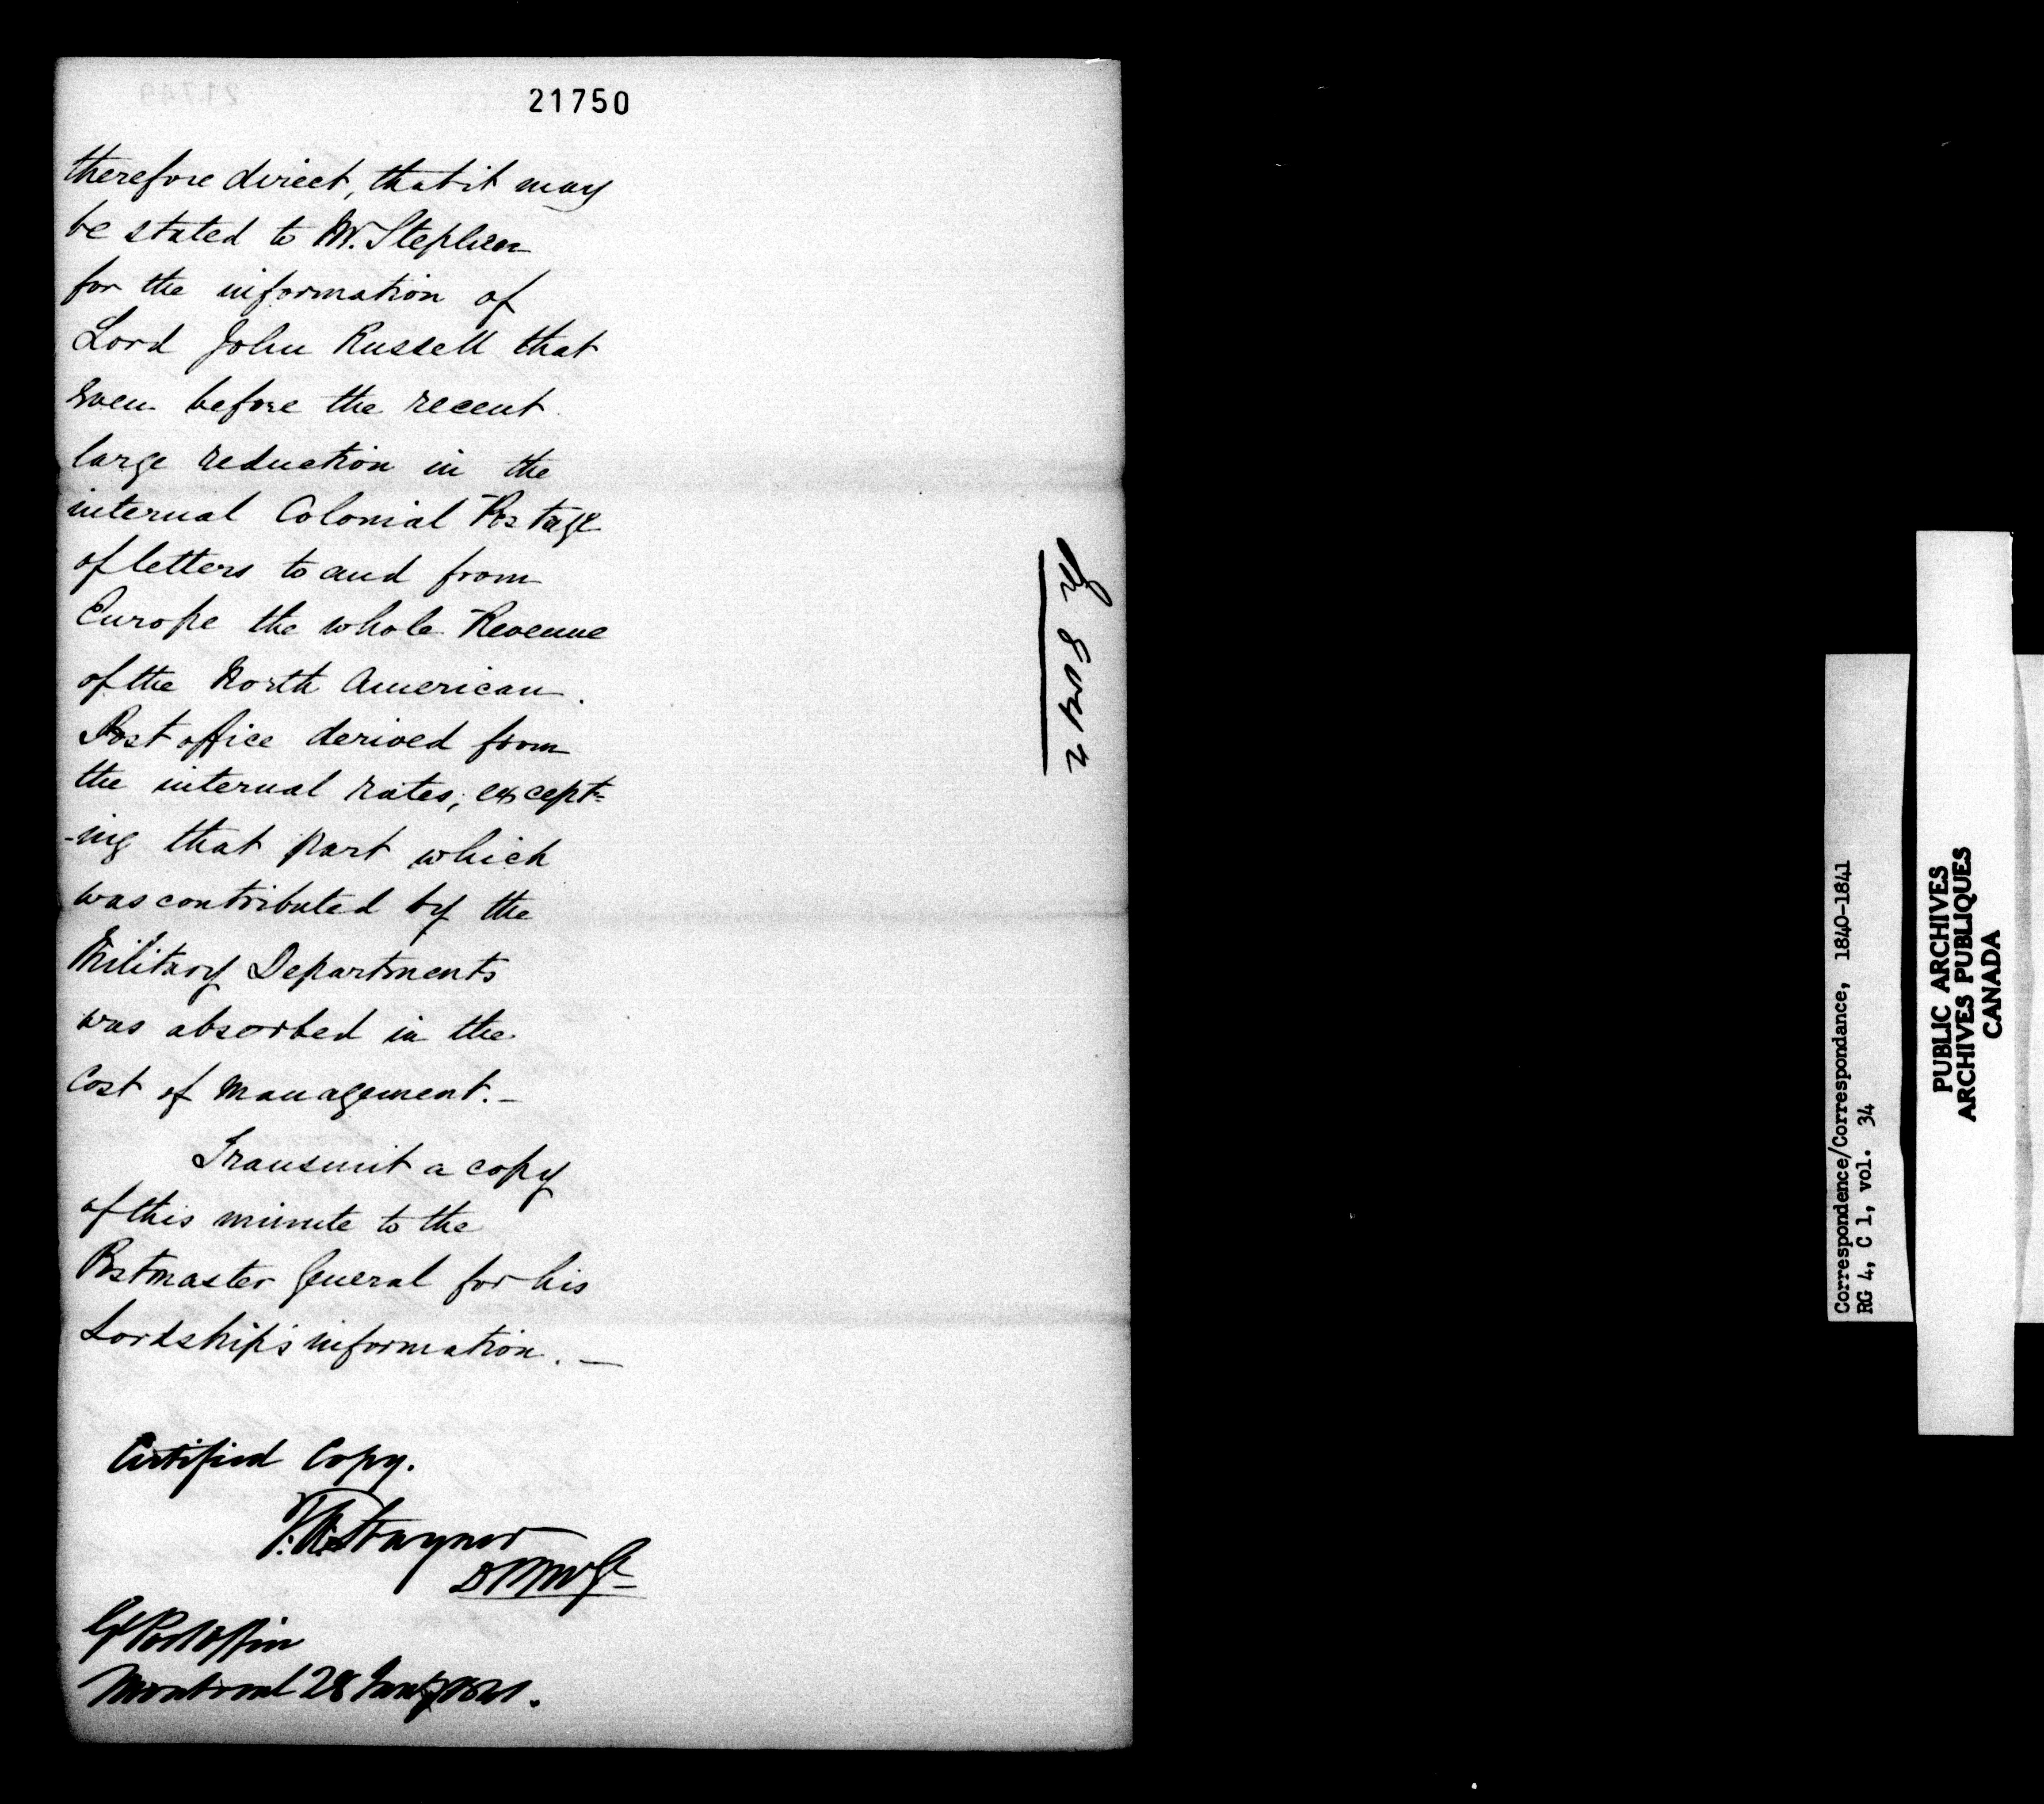 21750
therefore direct, that it may
be stated to Mr. Stephen
for the information of
Lord John Russell that
even before the recent
large reduction in the
internal Colonial Postage
of letters to and from
Europe the whole Revenue
of the North American
Post office derived from
the internal rates, except=
-ing that part which
was contributed by the
Military Departments
was absorbed in the
Cost of Management. –
Transmit a copy
of this minute to the
Postmaster General for his
Lordship's information. –
Certified Copy.
T. A. Stayner
DPMGl
Gl Post Office
Montreal 28 Jany 1841.
Correspondence/Correspondance, 1840-1841
RG 4, C 1, vol. 34
PUBLIC ARCHIVES
ARCHIVES PUBLIQUES
CANADA